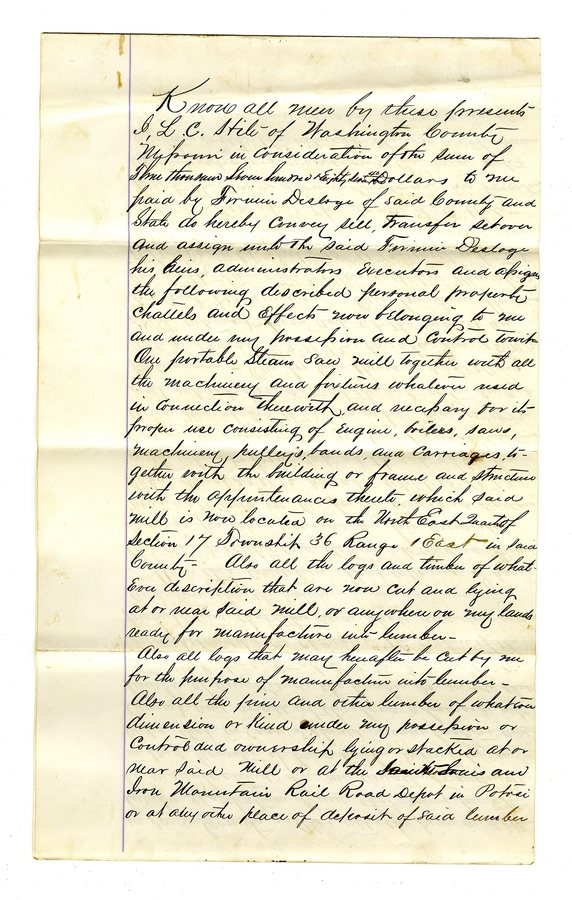 Know all men by these presents
I, L. C. Stite of Washington County
Missouri in consideration of the sum of
Three thousand Seven hundred & Eighty Dollars to me
paid by Firmin Desloge of said County and
State do hereby Convey sell, Transfer set over
and assign unto the said Firmin Desloge
his heirs, administrators Executors and assigns
the following described personal property
chattels and Effects now belonging to me
and under my possession and control towit
One portable Steam Saw mill together with all
the machinery and fixtures whatever used
in Connection therewith, and necessary for its
proper use consisting of Engine, boilers, saws,
machinery, pulleys, bands, and carriages, to-
gether with the building or frame and structure
with the appurtenances thereto, which said
mill is now located on the North East Quart of
Section 17 Township 36 Range 1 East in said
County- Also all the logs and timber of what-
Ever description that are now cut and lying
at or near said mill, or anywhere on my lands
ready for manufacture into lumber-
Also all logs that may hereafter be cut by me
for the purpose of manufacture into lumber-
Also all the pine and other lumber of whatever
dimension or kind under my possession or
Control and ownership lying or stacked at or
near said Mill or at the and
Iron Mountain Rail Road Depot in Potosi
or at any other place of deposit of said lumber